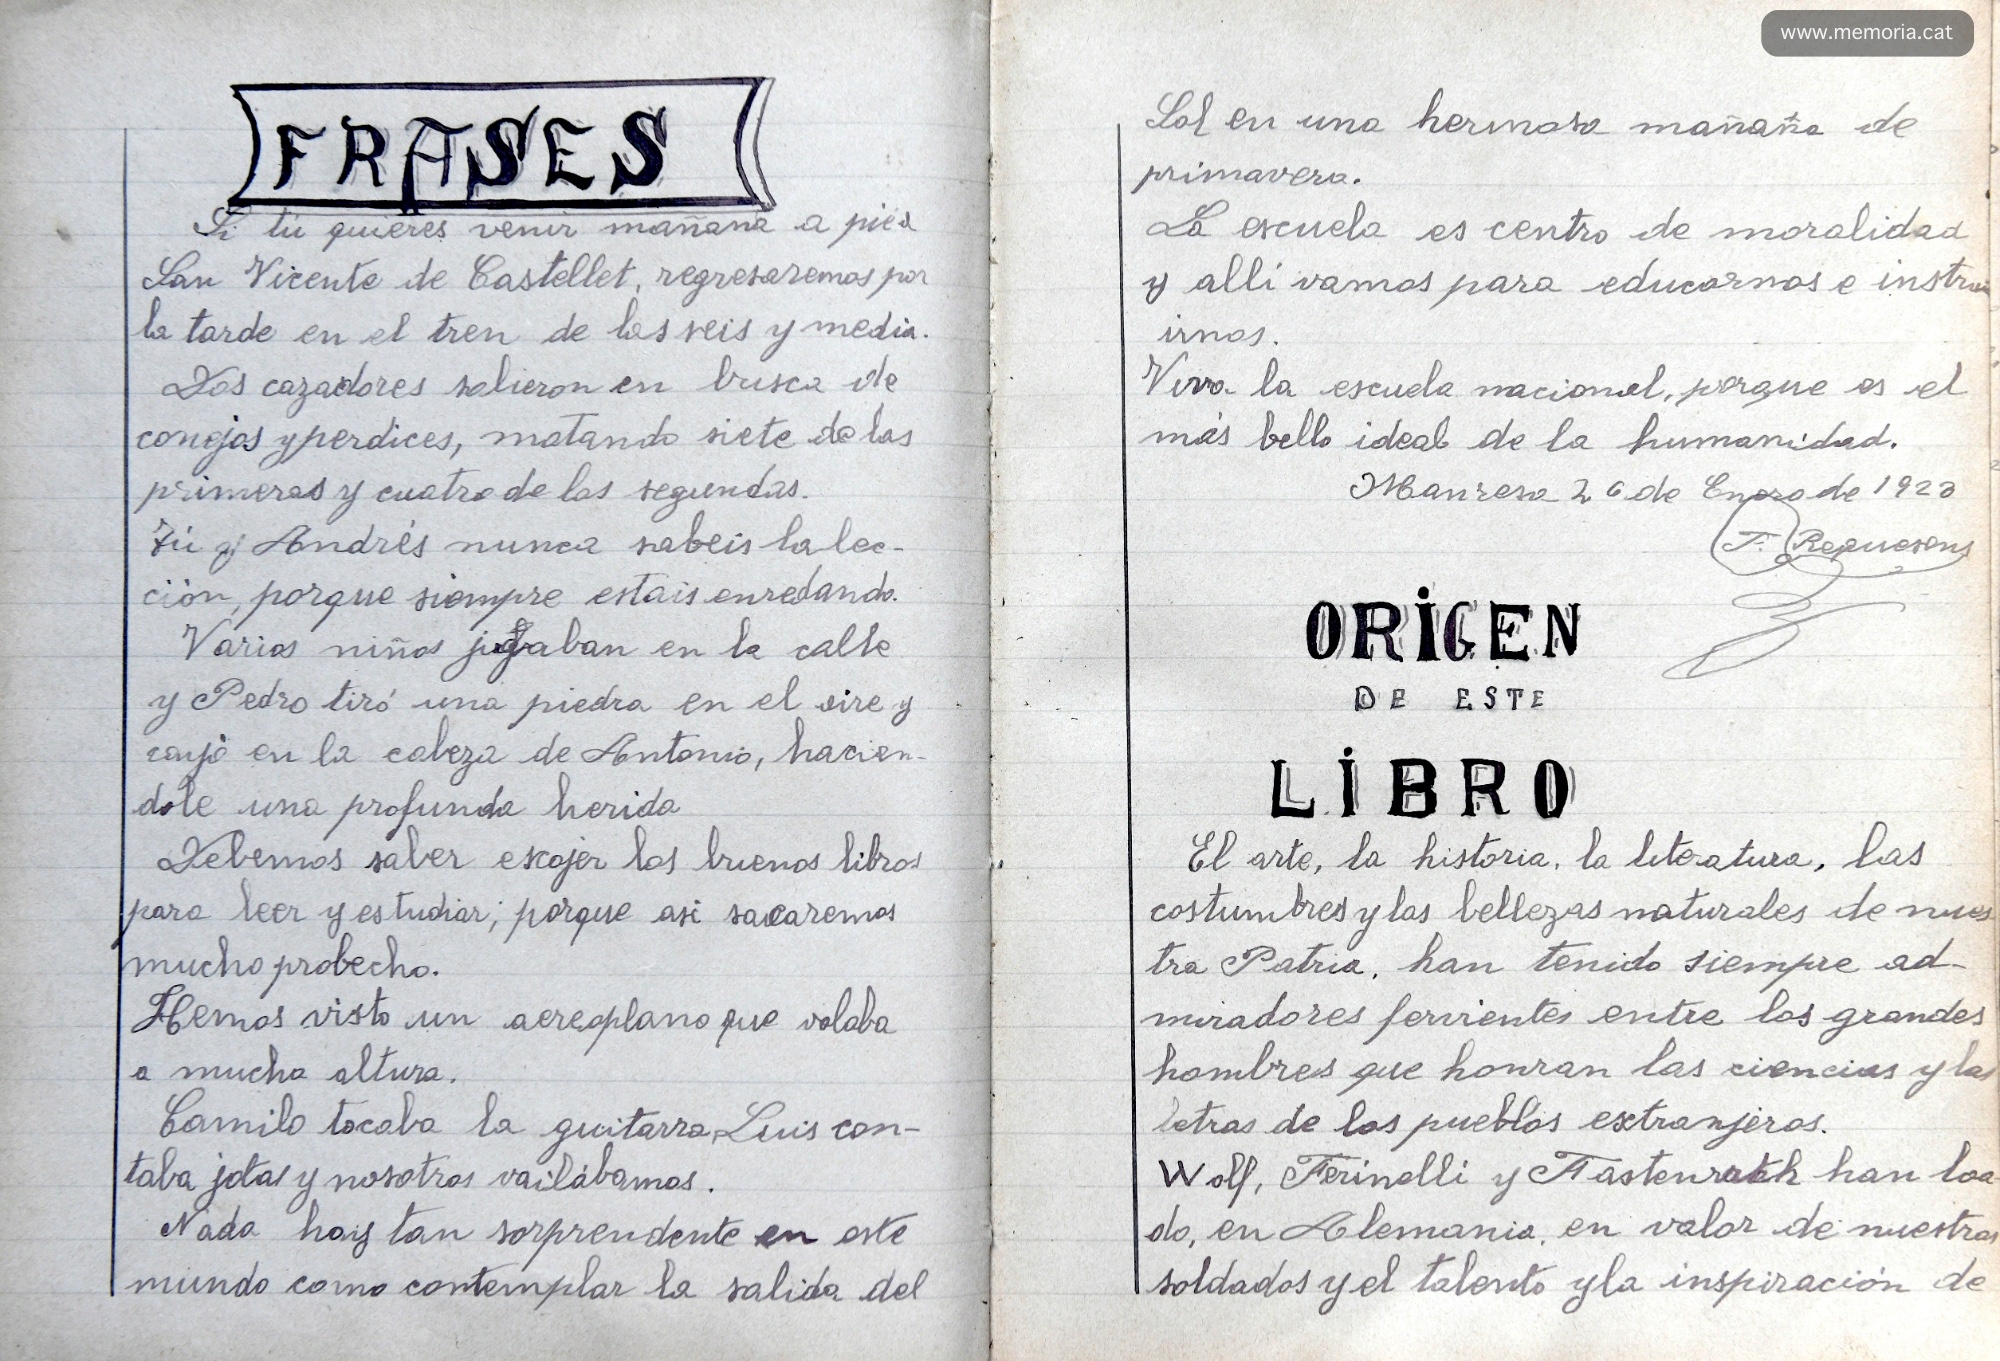 www.memoria.cat
FRASES
Si tú quieres venir mañana a pies
San Vicente de Castellet, regresaremos por
la tarde en el tren de las seis y media.
Dos cazadores salieron en busca de
conejos y perdices, matando siete de las
primeras y cuatro de las segundas.
Tú y Andrés nunca sabeis la lec-
ción, porque siempre estais enredando.
Varios niños jugaban en la calle
y Pedro tiró una piedra en el aire y
cayó en la cabeza de Antonio, hacien-
dole una profunda herida
Debemos saber escojer los buenos libros
para leer y estudiar; porque asi sacaremos
mucho probecho.
Hemos visto un aereoplano que volaba
a mucha altura.
Camilo tocaba la guitarra, Luis can-
taba jotas y nosotros vailábamos.
Nada hay tan sorprendente en este
mundo como contemplar la salida del
Sol en una hermosa mañana de
primavera.
La escuela es centro de moralidad
y allí vamos para educarnos e instru
irnos.
Viva la escuela nacional, porque es el
más bello ideal de la humanidad.
Manresa 26 de Enero de 1923
F. Requesens
ORIGEN
DE ESTE
LIBRO
El arte, la historia, la literatura, las
costumbres y las bellezas naturales de nues
tra Patria, han tenido siempre ad-
miradores fervientes entre los grandes
hombres que honran las ciencias y las
letras de los pueblos extranjeros.
Wolf, Ferinelli y Fastenrath han loa
do, en Alemania, en valor de nuestros
soldados y el talento y la inspiración de